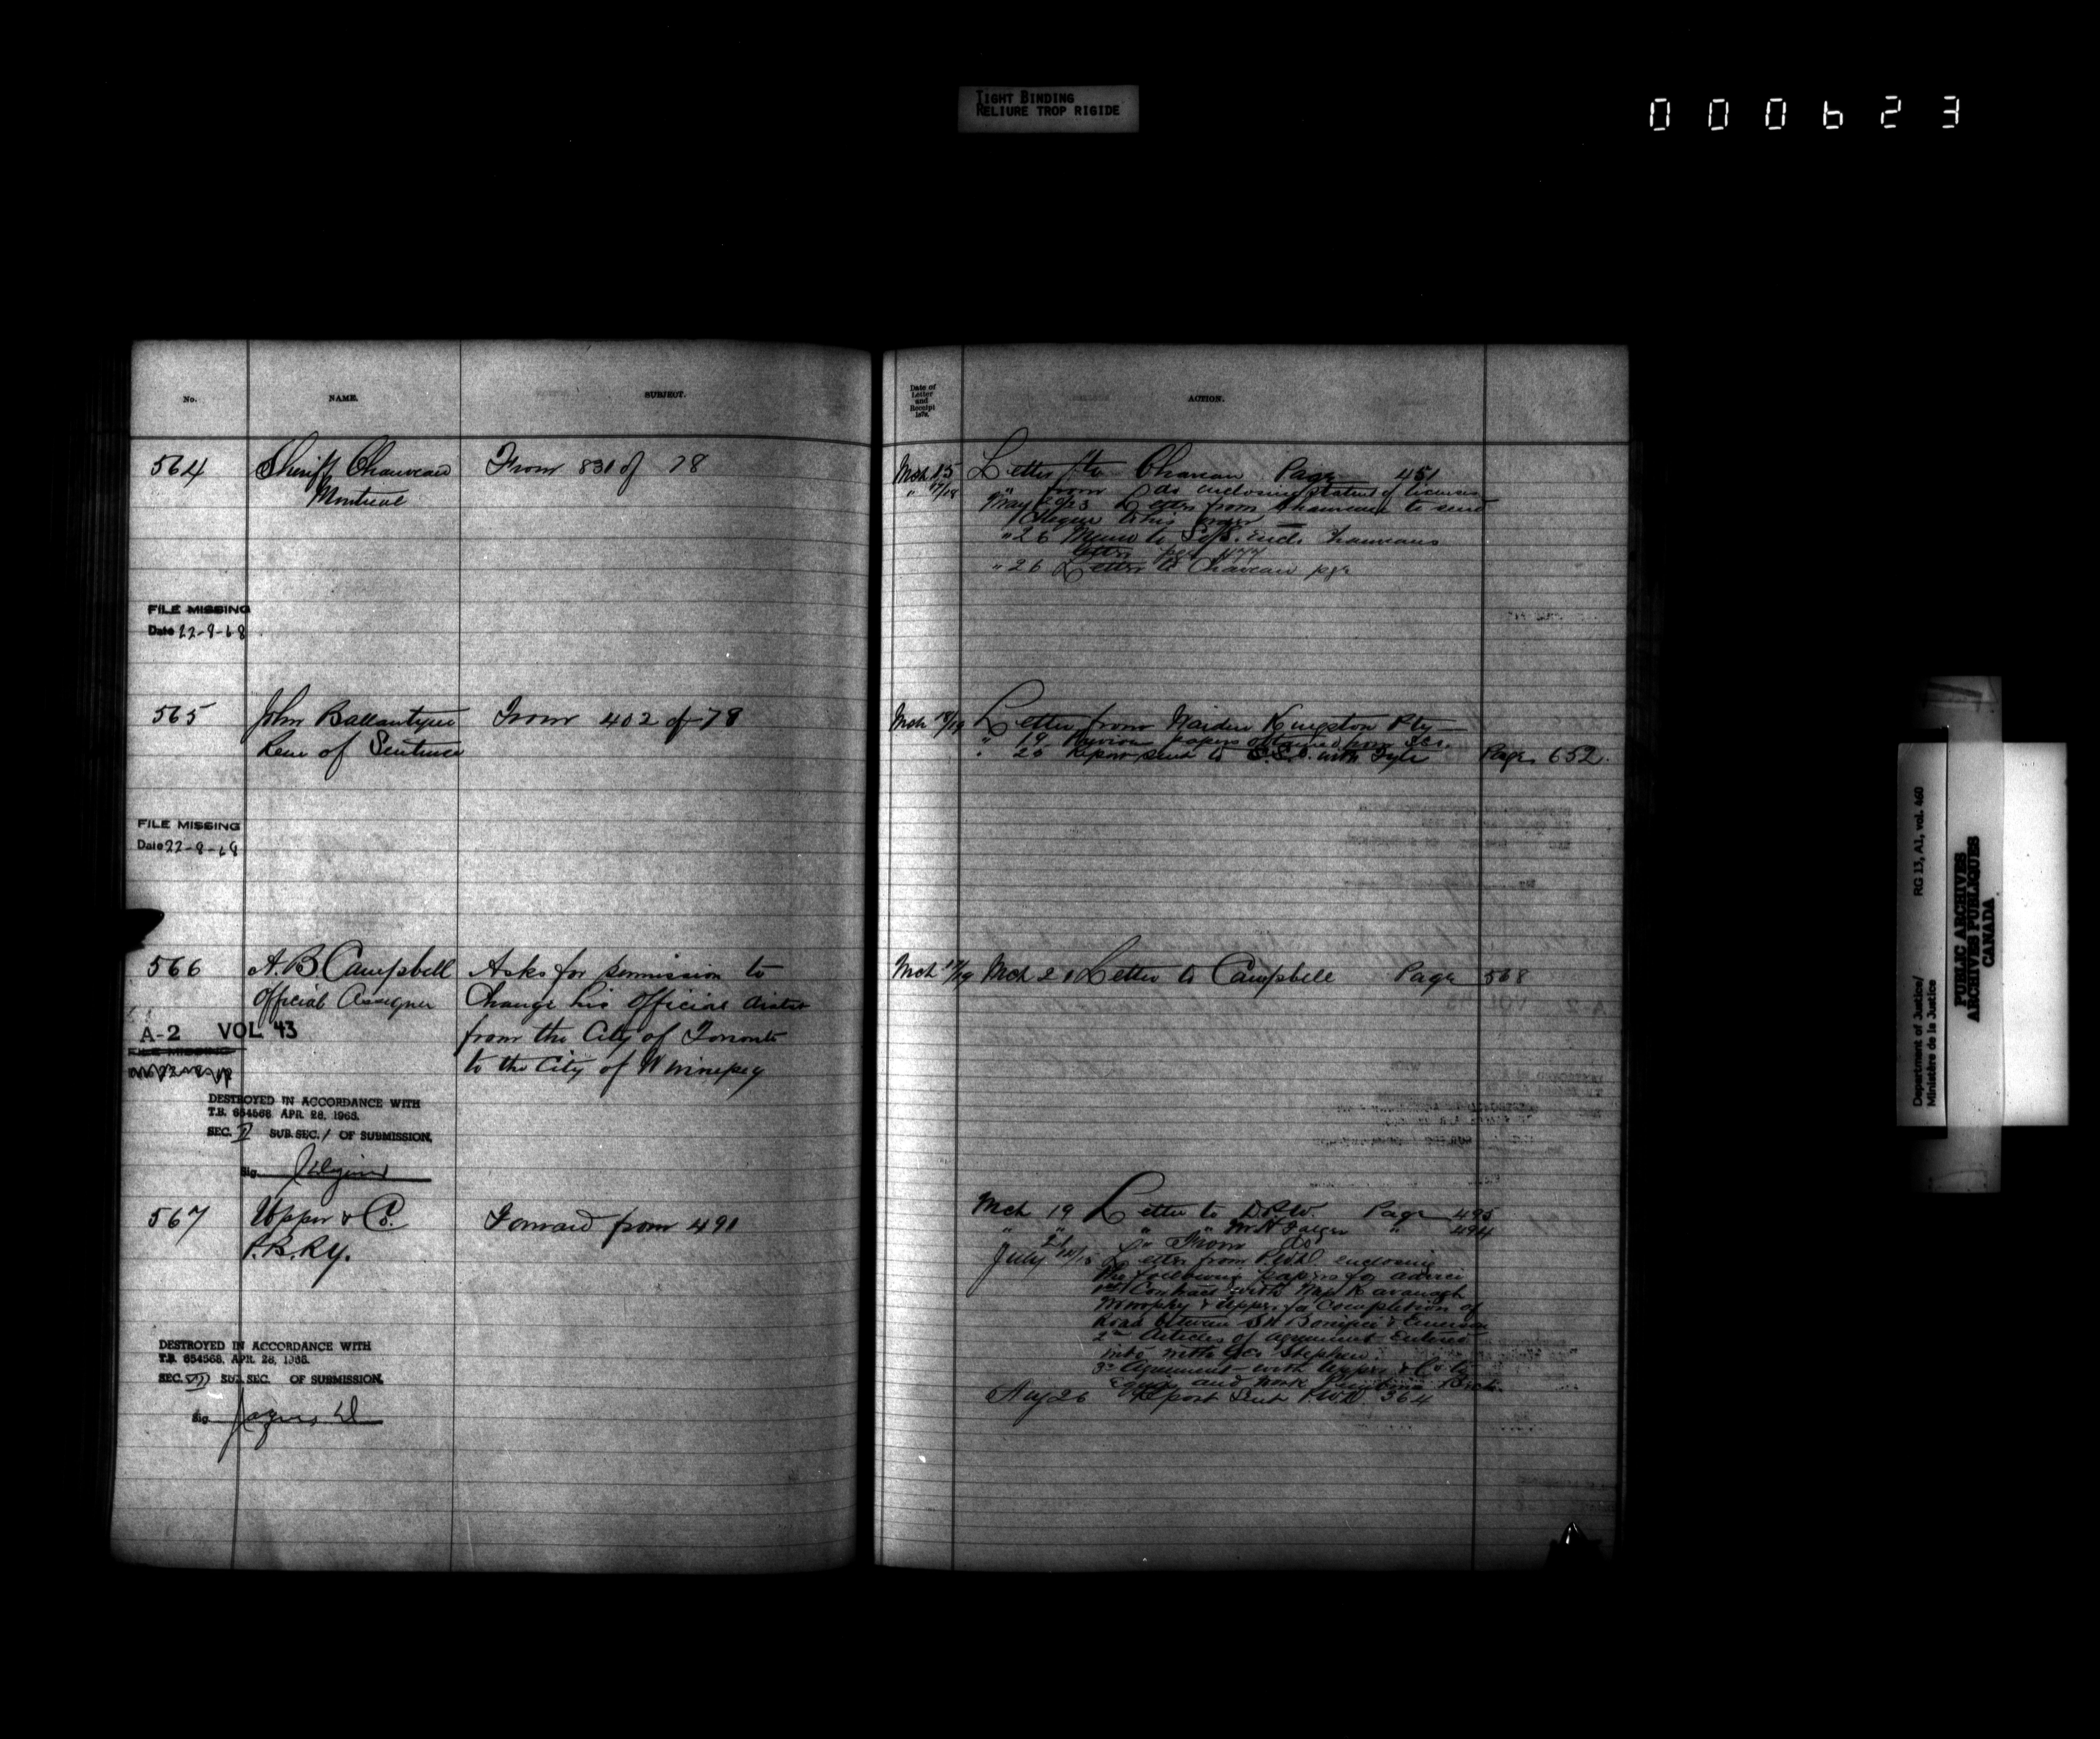 TIGHT BINDING
RELIURE TROP RIGIDE
000623
No.
NAME.
SUBJECT.
564
Sheriff Chauveau
Montreal
From 831 of 78
FILE MISSING
Date 22-8-68
565
John Ballantyne
Rem of Sentence
From 402 of 78
FILE MISSING
Date 22-8-68
566
A. B. Campbell
Official Assignee
Asks for permission to
Change his Official
from the City of Toronto
to the City of Winnipeg
A-2 VOL 43
FILE MISSING
DESTROYED IN ACCORDANCE WITH
T.B. 654568 APR. 28, 1966.
SEC. II SUB. SEC. 1 OF SUBMISSION.
Sig.
567
Upper & Co.
P.B.Ry.
Forward from 491
DESTROYED IN ACCORDANCE WITH
T.B. 654568, APR. 28, 1966.
SEC. VII SUB. SEC. OF SUBMISSION.
Sig.
Date of
Letter
and
Receipt
187
ACTION.
Mch 15 Letter to Chaveau Page 451
" 17/18 " from do enclosing of licenses
May 20/23 Letter from Chauveau to send
Cheque to his order
" 26 Memo to encl. Chauveaus
letter pge 477
" 26 Letter to Chaveau pge
Mch 18/19 Letter from Warden Kingston Pty
" 19 papers obtained from
" 26 Report sent to S.S.C. with Fyle Page 652.
Mch 18/19 Mch 21 Letter to Campbell Page 568
Mch 19 Letter to D.P.W. Page 495
" " " Mr H " 494
" 21 " From do
July Letter from enclosing
the following papers for advice
1st Contract with Kavanagh
Murphy & Upper for Completion of
Road between St Boniface & Emerson
2nd Articles of agreement entered
into with Geo Stephen.
3rd Agreement with Upper & Co to
Equip and work Pembina Brch.
Aug 26 Report Sent P.W.D. 364
Department of Justice/
Ministère de la Justice
RG 13, A1, vol. 460
PUBLIC ARCHIVES
ARCHIVES PUBLIQUES
CANADA